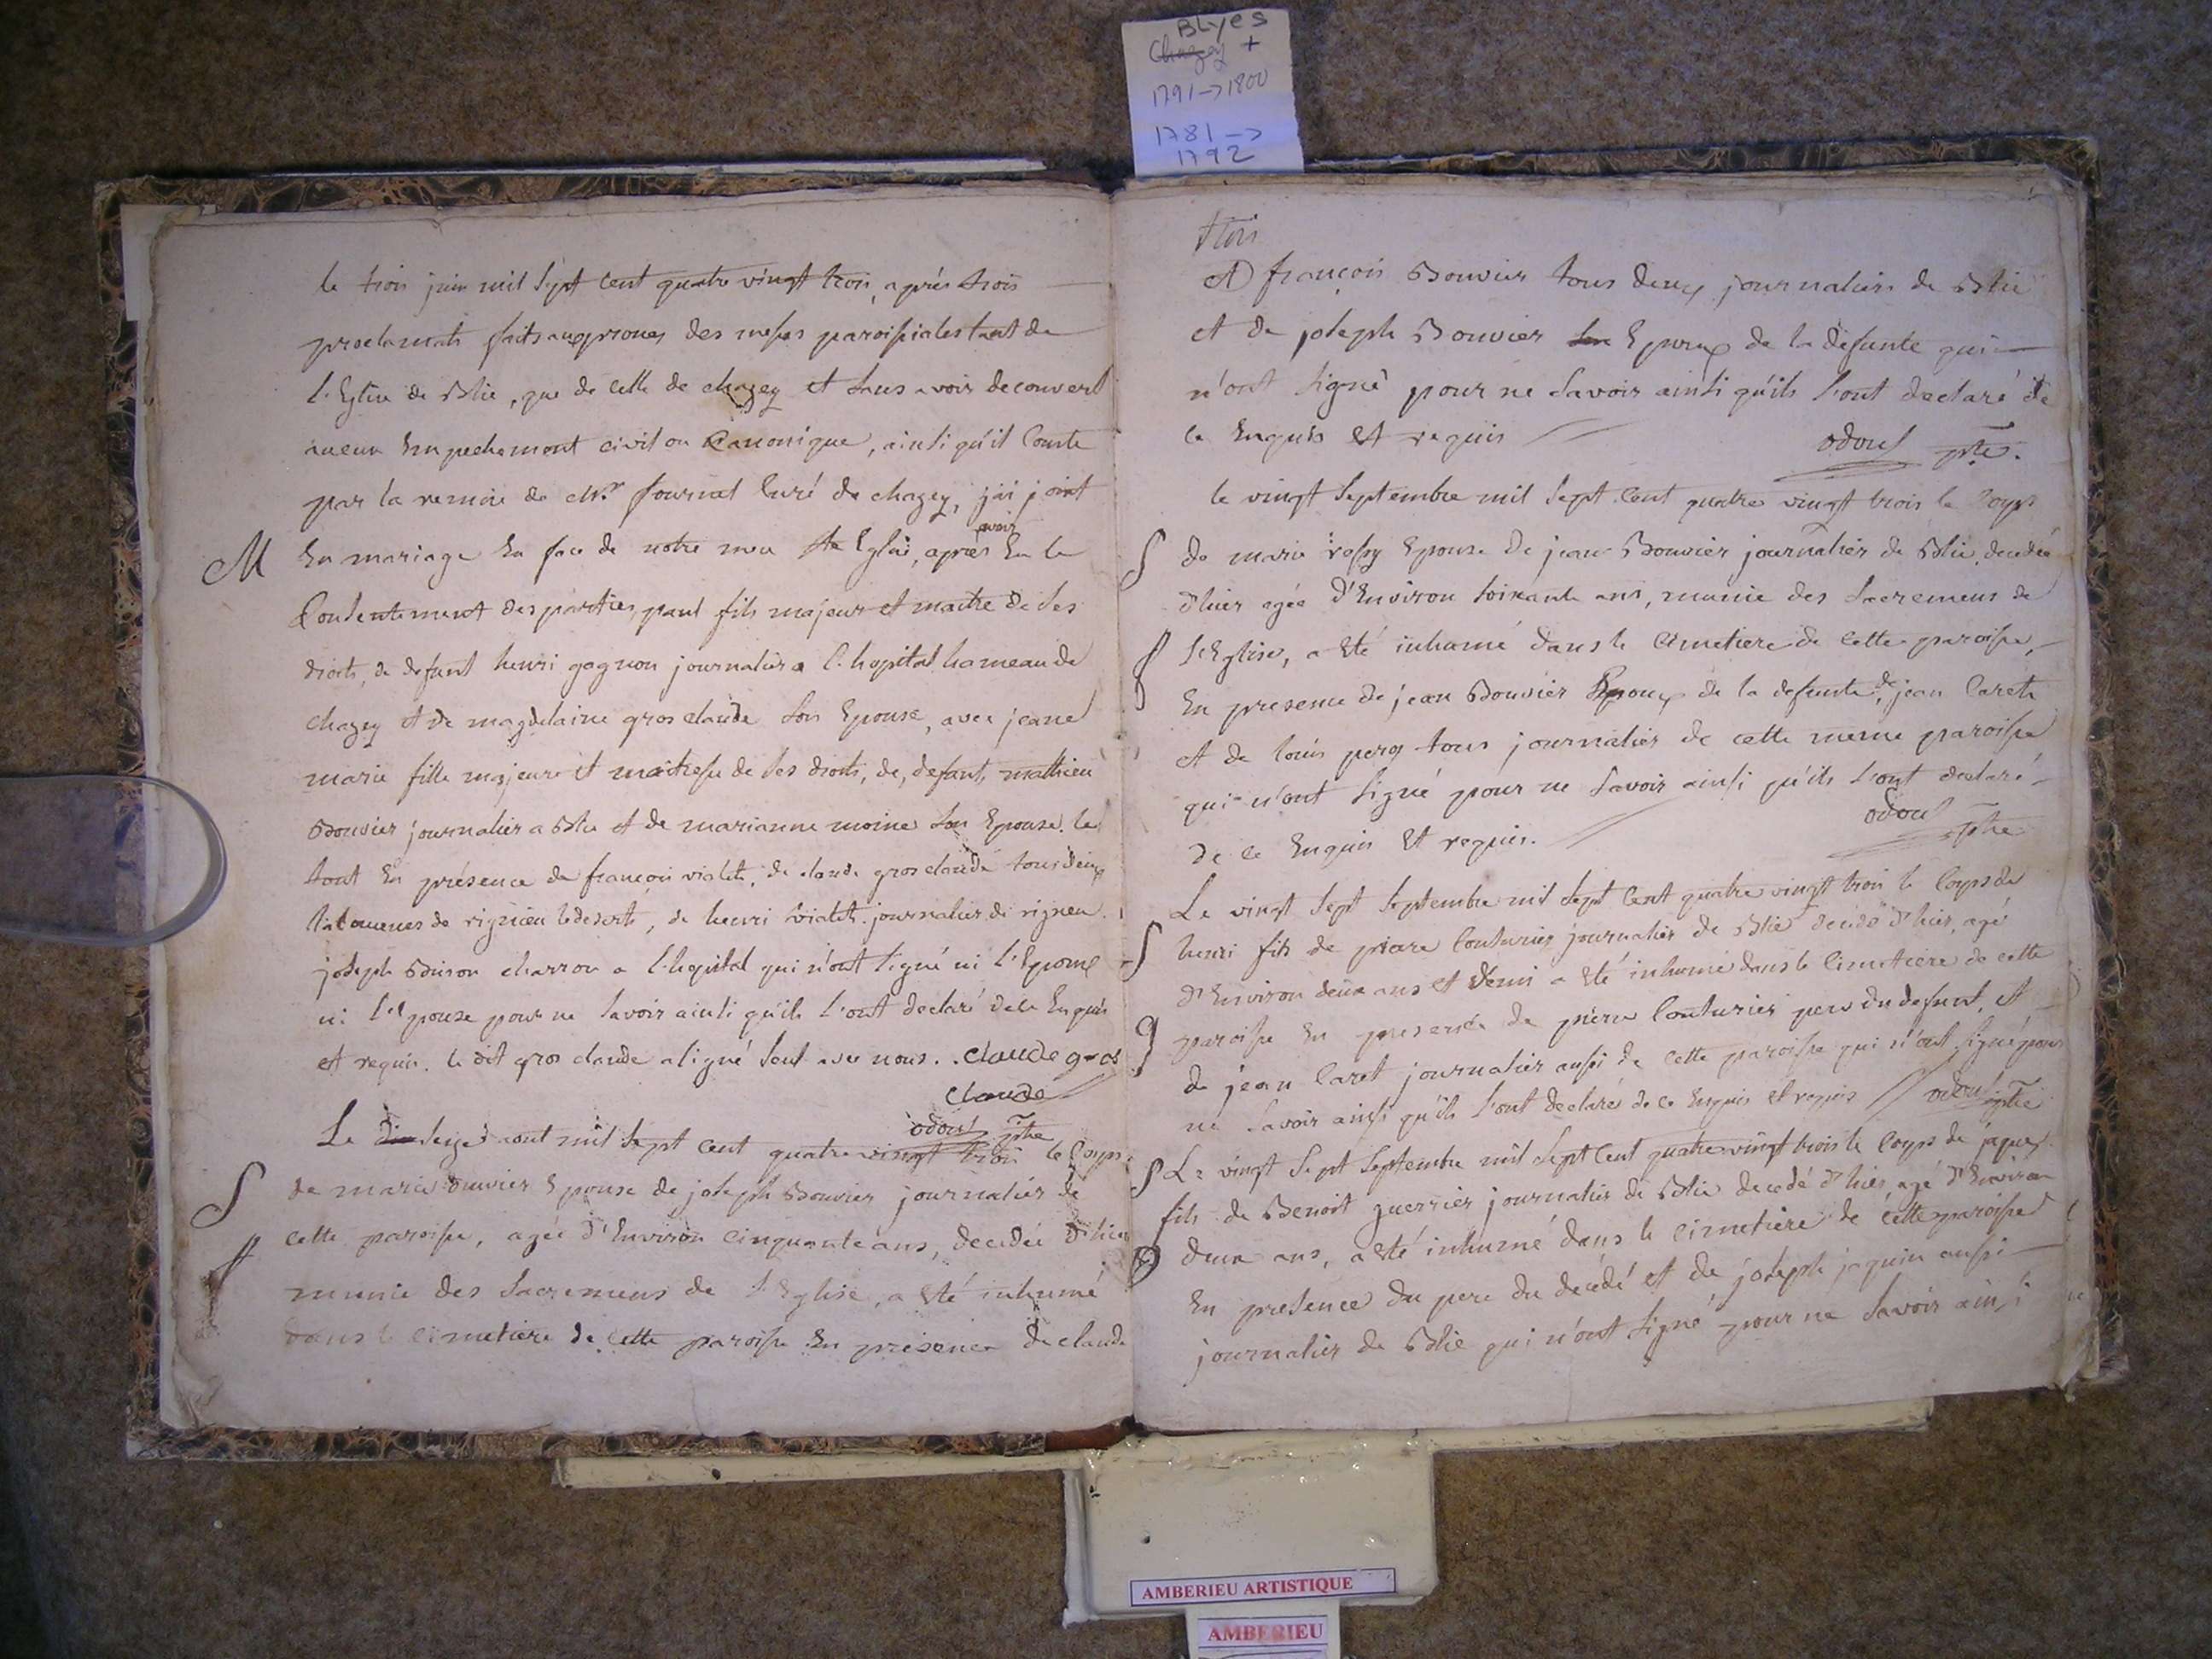 BLyes
Chazey +
1791 -> 1800
1781 ->
1792
le trois juin mil sept cent quatre vingt trois, aprés trois
proclamats faits aux prones des messes paroissiales tant de
l'Eglise de Blie, que de celle de chazey et sans avoir decouvert
aucun Empechement civil ou Canonique, ainsi qu'il Conste
par la remise de Mr. fournet Curé de chazey, j'ai joint
M
En mariage En face de notre mere Ste Eglise, après avoir Eu le
Consentement des parties, paul fils majeur et maitre de ses
droits, de defunt henri gagnon journalier a l'hopital hameau de
chazey et de magdelaine gros claude son Epouse, avec jeane
marie fille majeure et maitresse de ses droits, de, defunt, mathieu
Bouvier journalier a Blie et de marianne moine son Epouse. le
tout En présence de françois violet, de claude gros claude tous deux
de rignieu le desert, de henri violet journalier de rigneu
joseph Buison charron a l'hopital qui n'ont signé ni l'Epoux
ni l'Epouse pour ne savoir ainsi qu'ils l'ont declaré de ce Enquis
et requis. le dit gros claude a signé seul avec nous. claude gros
claude
odout ptre
Le seize aout mil sept cent quatre vingt trois le Corps
S
de marie ouvier Epouse de joseph Bouvier journalier de
cette paroisse, agée d'Environ cinquante ans, decedée d'hier
munie des sacremens de l'Eglise, a Eté inhumé
dans le cimetiere de cette paroisse En présence de claude
trois
et françois Bouvier tous deux journaliers de Blie
et de joseph Bouvier Epoux de la defunte qui
n'ont signé pour ne savoir ainsi qu'ils l'ont declaré de
ce Enquis et requis
odout ptre.
le vingt septembre mil sept cent quatre vingt trois le Corps
S
de marie Epouse de jean Bouvier journalier de Blie, decedée
d'hier agée d'Environ soixante ans, munie des sacremens de
l'Eglise, a Eté inhumé dans le Cimetiere de cette paroisse,
En presence de jean Bouvier Epoux de la defunte, de jean Caret
et de louis tous journaliers de cette meme paroisse
qui n'ont signé pour ne savoir ainsi qu'ils l'ont declaré
de ce Enquis et requis.
odout ptre
Le vingt sept septembre mil sept cent quatre vingt trois le Corps de
S
henri fils de pierre Couturier journalier de Blie decedé d'hier, agé
d'Environ deux ans et demi a Eté inhumé dans le cimetiere de cette
paroisse En presence de pierre Couturier pere du defunt, et
de jean Caret journalier aussi de cette paroisse qui n'ont signé pour
ne savoir ainsi qu'ils l'ont declaré de ce Enquis et requis odout ptre
S
Le vingt sept septembre mil sept cent quatre vingt trois le Corps de jaques
fils de Benoit guerrier journalier de Blie decedé d'hier agé d'Environ
deux ans, a Eté inhumé dans le cimetiere de cette paroisse
En presence du pere du decedé et de joseph jaquin aussi
journalier de Blie qui n'ont signé pour ne savoir ainsi
AMBERIEU ARTISTIQUE
AMBERIEU